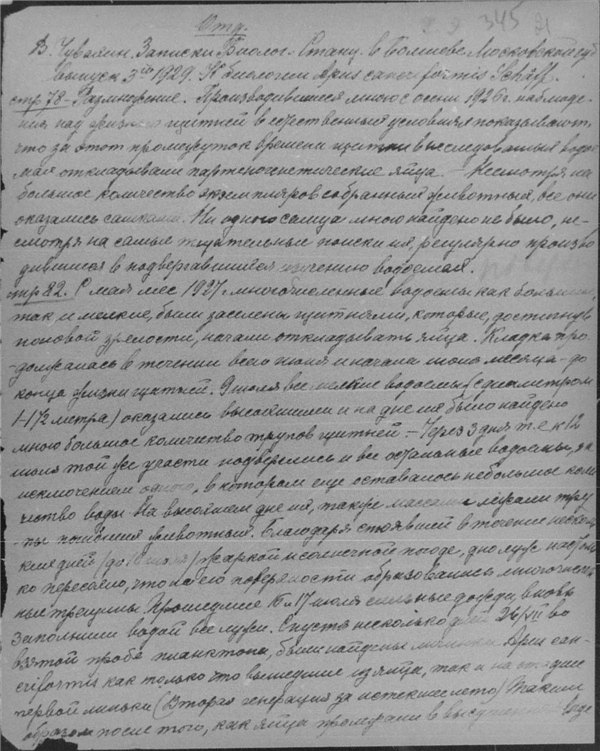 Отд.
345
В. Чувахин. Записки Биолог. Станц. в Болшеве Московской губ
Выпуск 3ий 1929. К биологии Apus cancriformis Schäff.
стр 78 – Размножение. Производившиеся мною с осени 1926 г. наблюде-
ния над жизнью щитней в естественных условиях показывают,
что за этот промежуток времени щитни в исследованных водое
мах откладывали партеногенетические яйца. – Несмотря на
большое количество экземпляров собранных животных, все они
оказались самками. Ни одного самца мною найдено не было, не-
смотря на самые тщательные поиски их, регулярно произво
дившиеся в подвергавшихся изучению водоемах.
стр 82. С мая мес 1927 г. многочисленные водоемы как большие,
так и мелкие, были заселены щитнями, которые, достигнув
половой зрелости, начали откладывать яйца. Кладка про-
должалась в течении всего июня и начала июля месяца – до
конца жизни щитней. 9 июля все мелкие водоемы (с диаметром
1-1½ метра) оказались высохшими и на дне их было найдено
мною большое количество трупов щитней – Через 3 дня т.е. к 12
июля той же участи подверглись и все остальные водоемы, за
исключением одного, в котором еще оставалось небольшое коли
чество воды. На высохшем дне их, также массами лежали тру
пы погибших животных. Благодаря стоявшей в течение несколь
ких дней (до июля) жаркой и солнечной погоде, дно луж настоль
ко пересохло, что на его поверхности образовались многочислен
ные трещины. Прошедшие 16 и 17 июля сильные дожди, вновь
заполнили водой все лужи. Спустя несколько дней 24/VII во
взятой пробе планктона, были найдены личинки Apus can-
criformis как только что вышедшие из яйца, так и на стадие
первой линьки (Вторая генерация за истекшее лето) Таким
образом после того, как яйца пролежали в высушенной